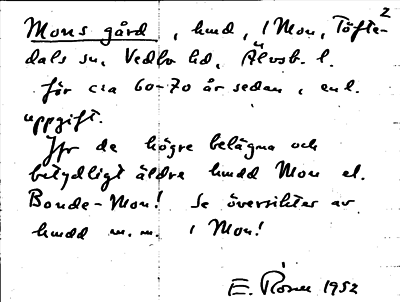 2
Mons gård, hmd, 1 Mon, Töfte-
dals sn, Vedbo hd, Älvsb. l.
för cca 60-70 år sedan, enl.
uppgift.
Jfr de högre belägna och
betydligt äldre hmdd Mon el.
Bonde-Mon! Se översikter av
hmdd m.m. i Mon!
E. 1952